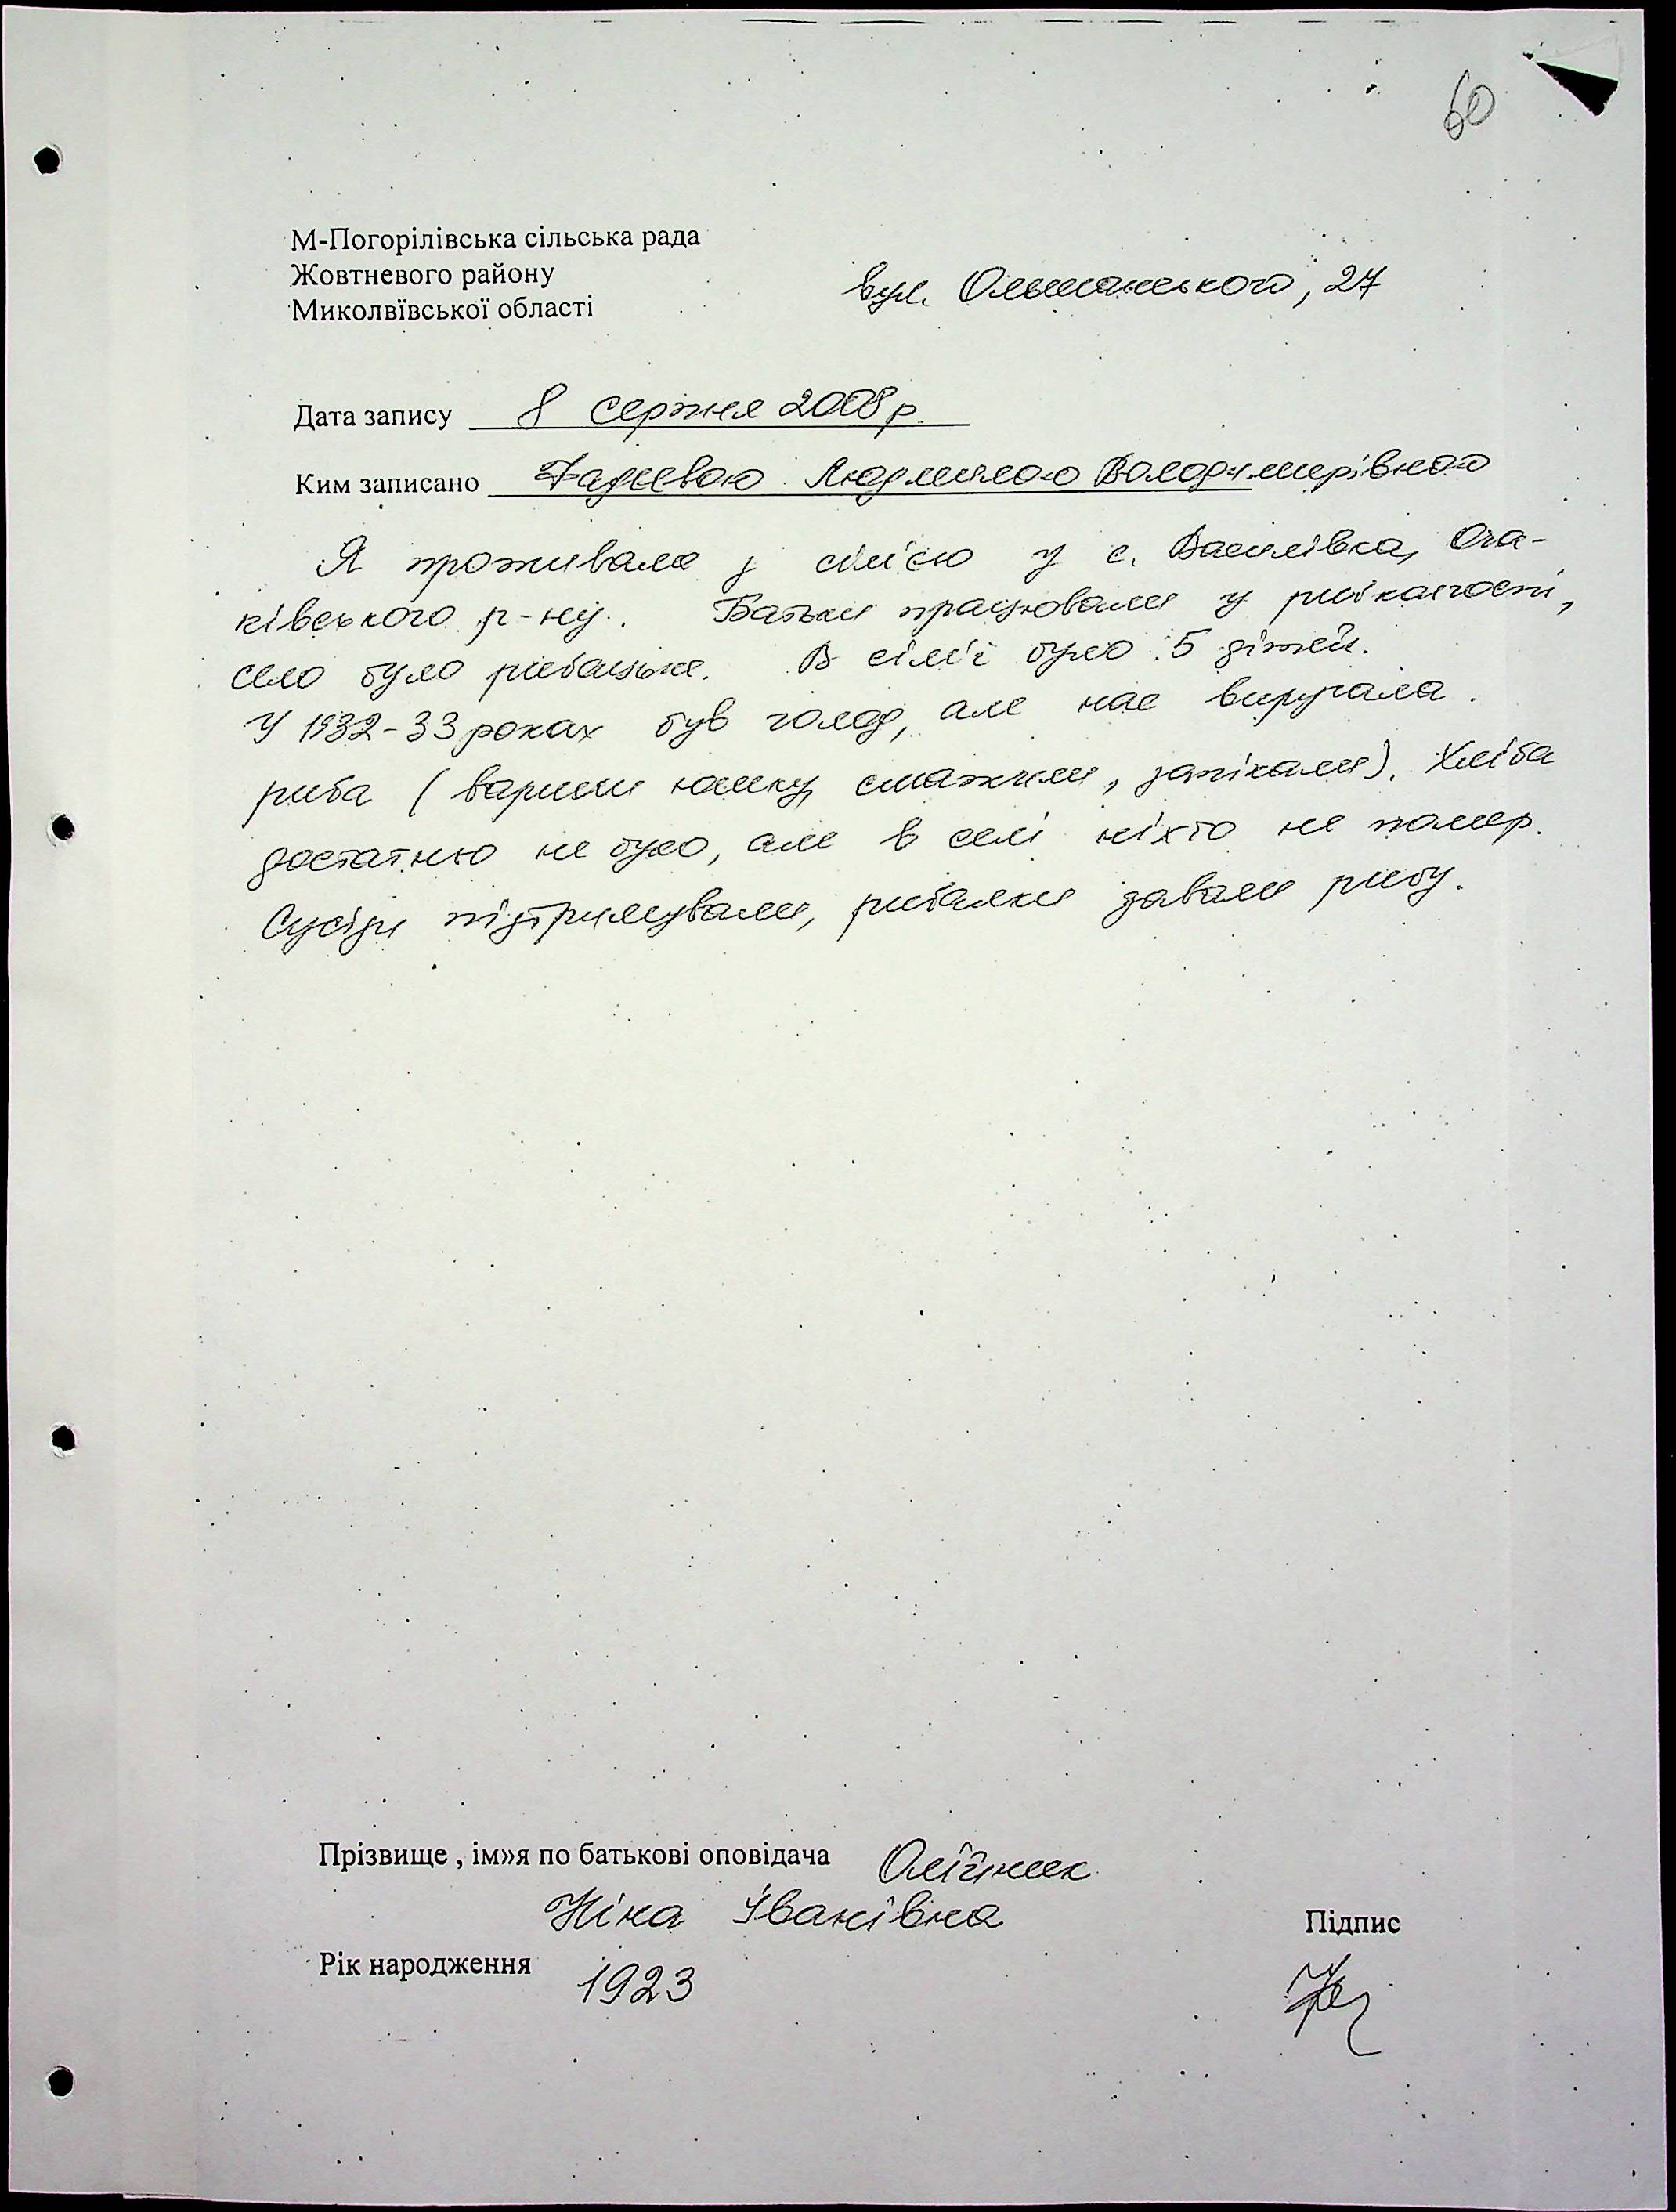 60
М-Погорілівська сільська рада
Жовтневого району
вул. Ольшанського, 27
Миколвївської області
Дата запису 8 серпня 2008 р.
Ким записано Фадєєвою Людмилою Володимирівною
Я проживала з сім'єю у с. Василівка, Оча-
ківського р-ну. Батьки працювали у
село було рибацьке. В сім'ї було 5 дітей.
У 1932-33 роках був голод, але нас виручала
риба (варили юшку, смажили, запікали). Хліба
достатньо не було, але в селі ніхто не помер.
Сусіди підтримували, рибалки давали рибу.
Прізвище , ім»я по батькові оповідача Олійник
Ніна Іванівна
Підпис
Рік народження 1923